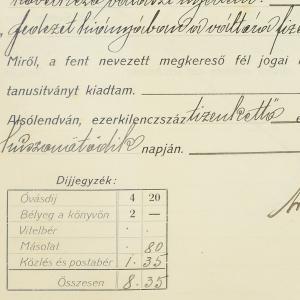 fedezet hiányában a váltóra fize
Miről, a fent nevezett megkereső fél jogai
tanusitványt kiadtam.
Alsólendván, ezerkilencszáz tizenkettő
huszonötödik napján.
Díjjegyzék:
Óvásdíj 4 20
Bélyeg a könyvön 2 —
Vitelbér . .
Másolat . 80
Közlés és postabér 1. 35
Összesen 8. 35